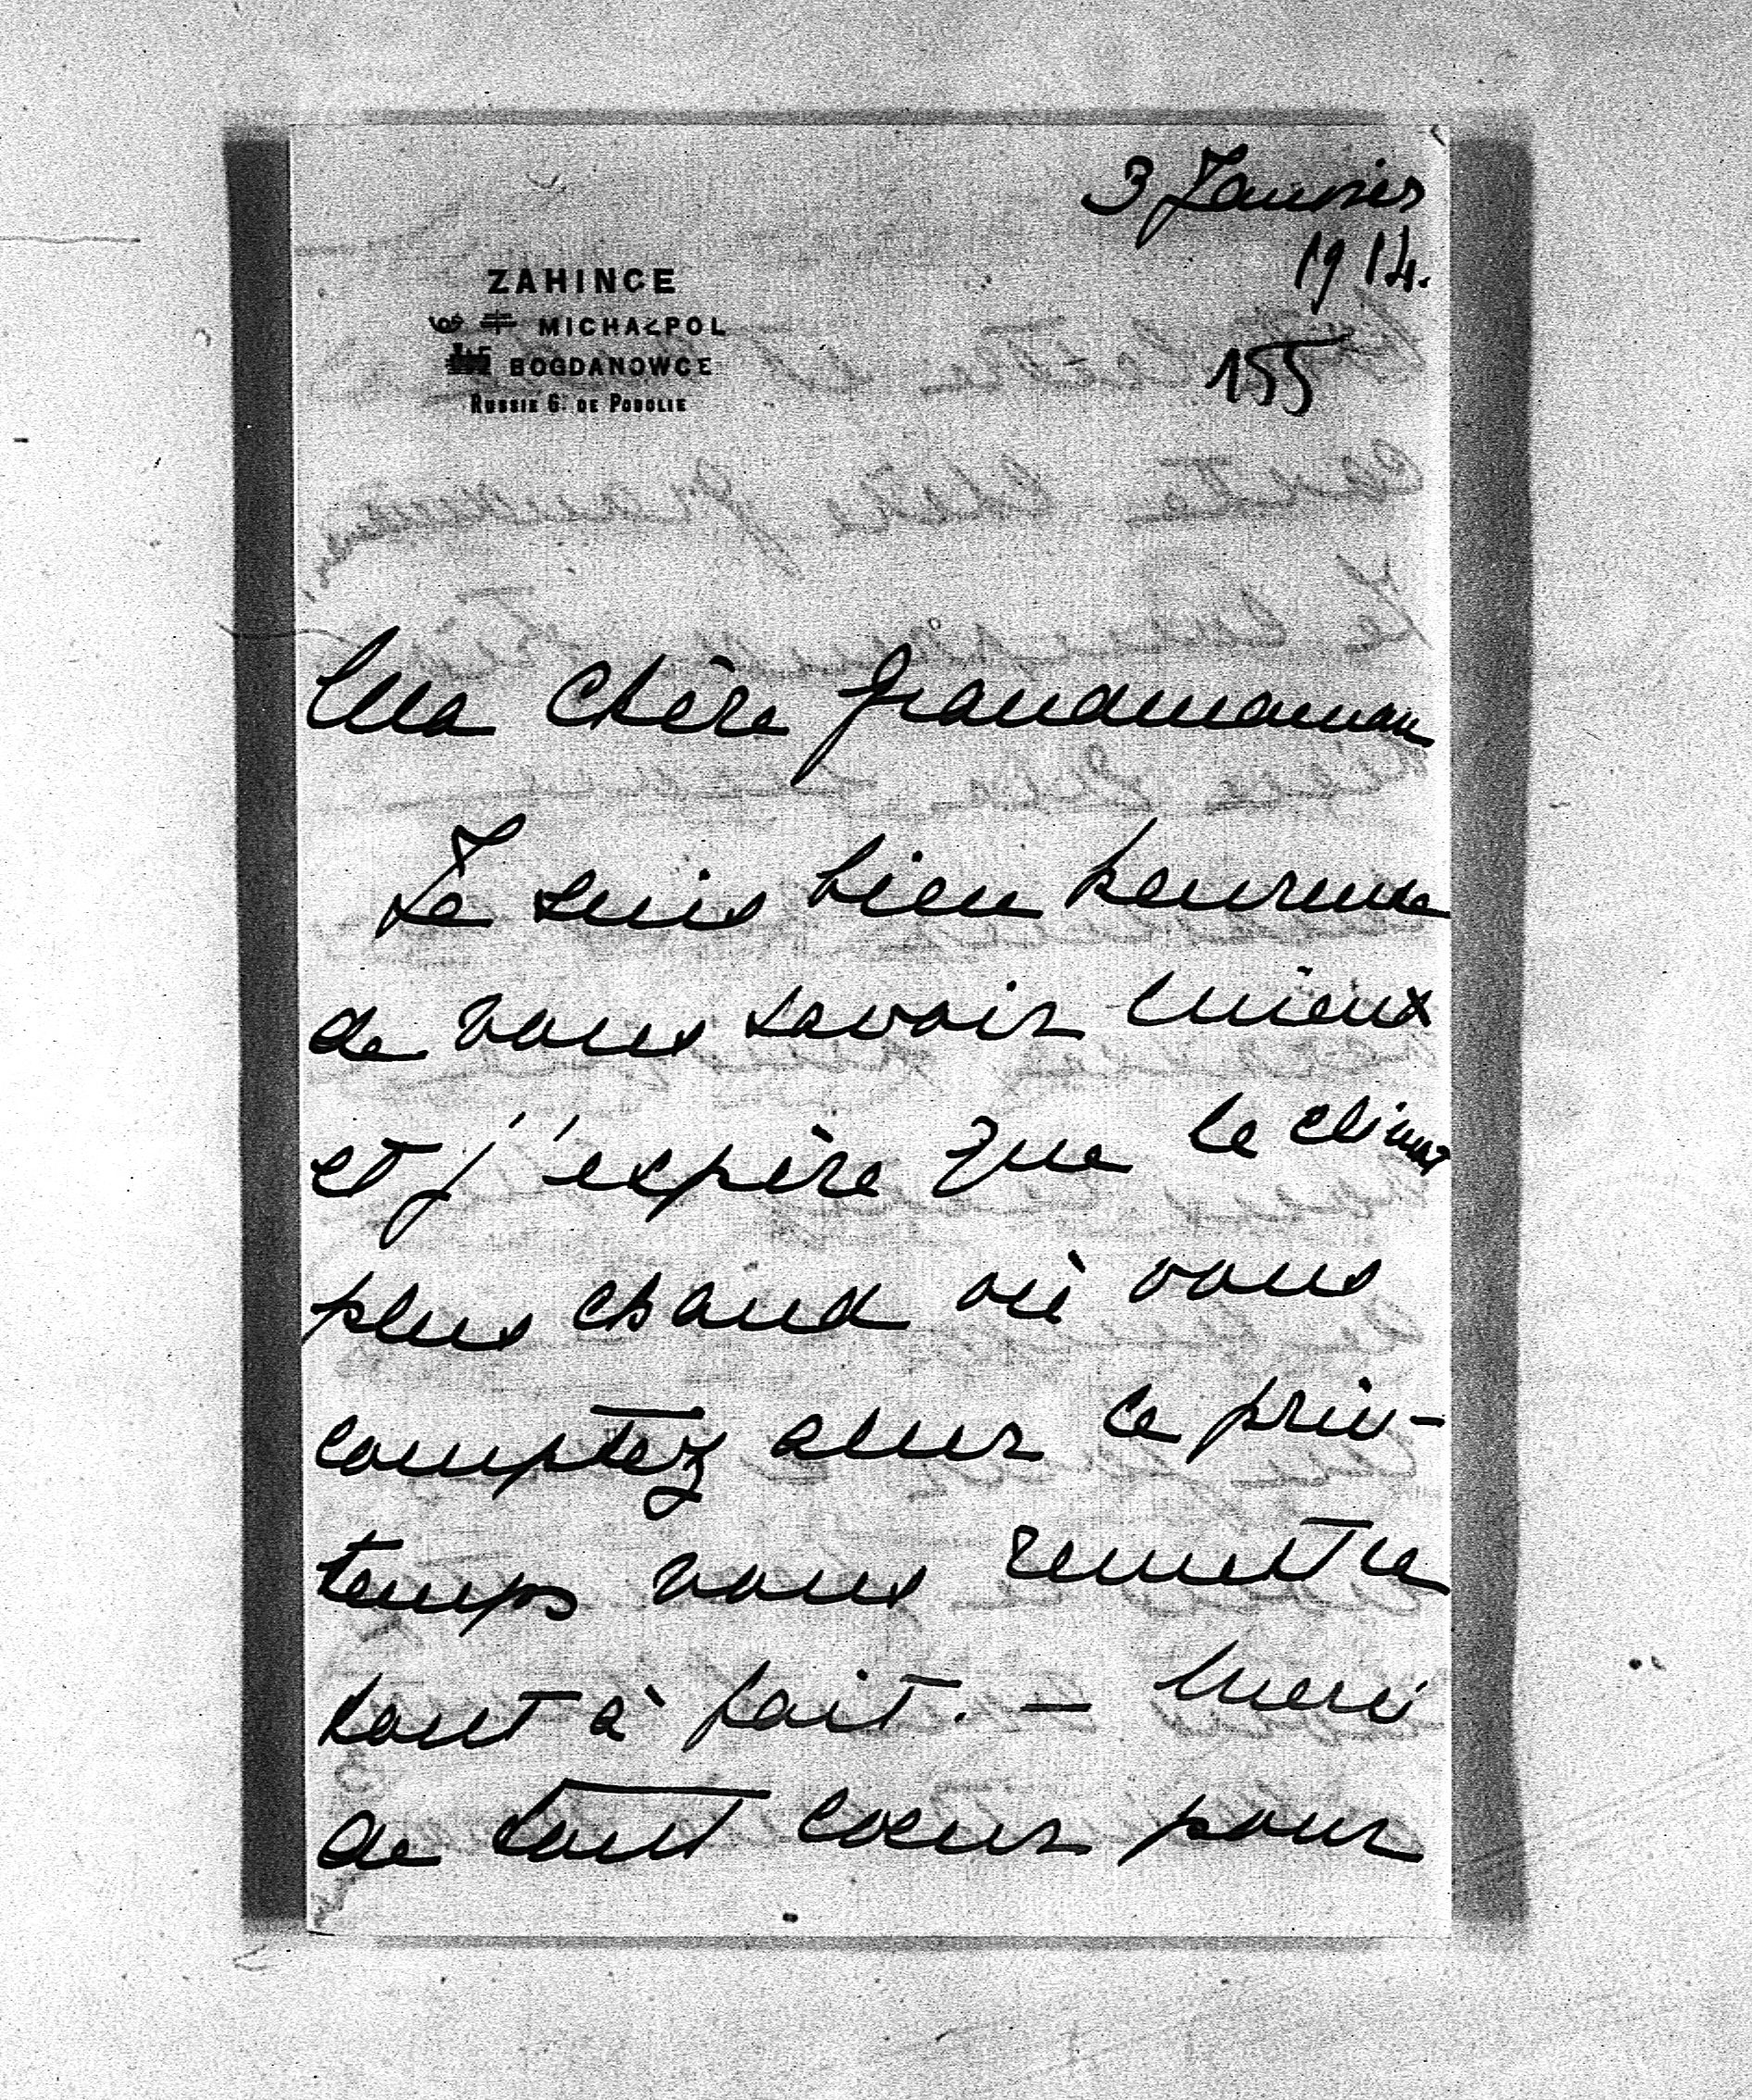 3 Janvier
1914.
155
ZAHINCE
MICHAŁPOL
BOGDANOWCE
RUSSIE G. DE PODOLIE
Ma chère grandmaman
Je suis bien heureuse
de vous savoir mieux
et j'espère que le climat
plus chaud où vous
comptez aller ce prin-
temps vous remettra
tout à fait. — Merci
de tout coeur pour